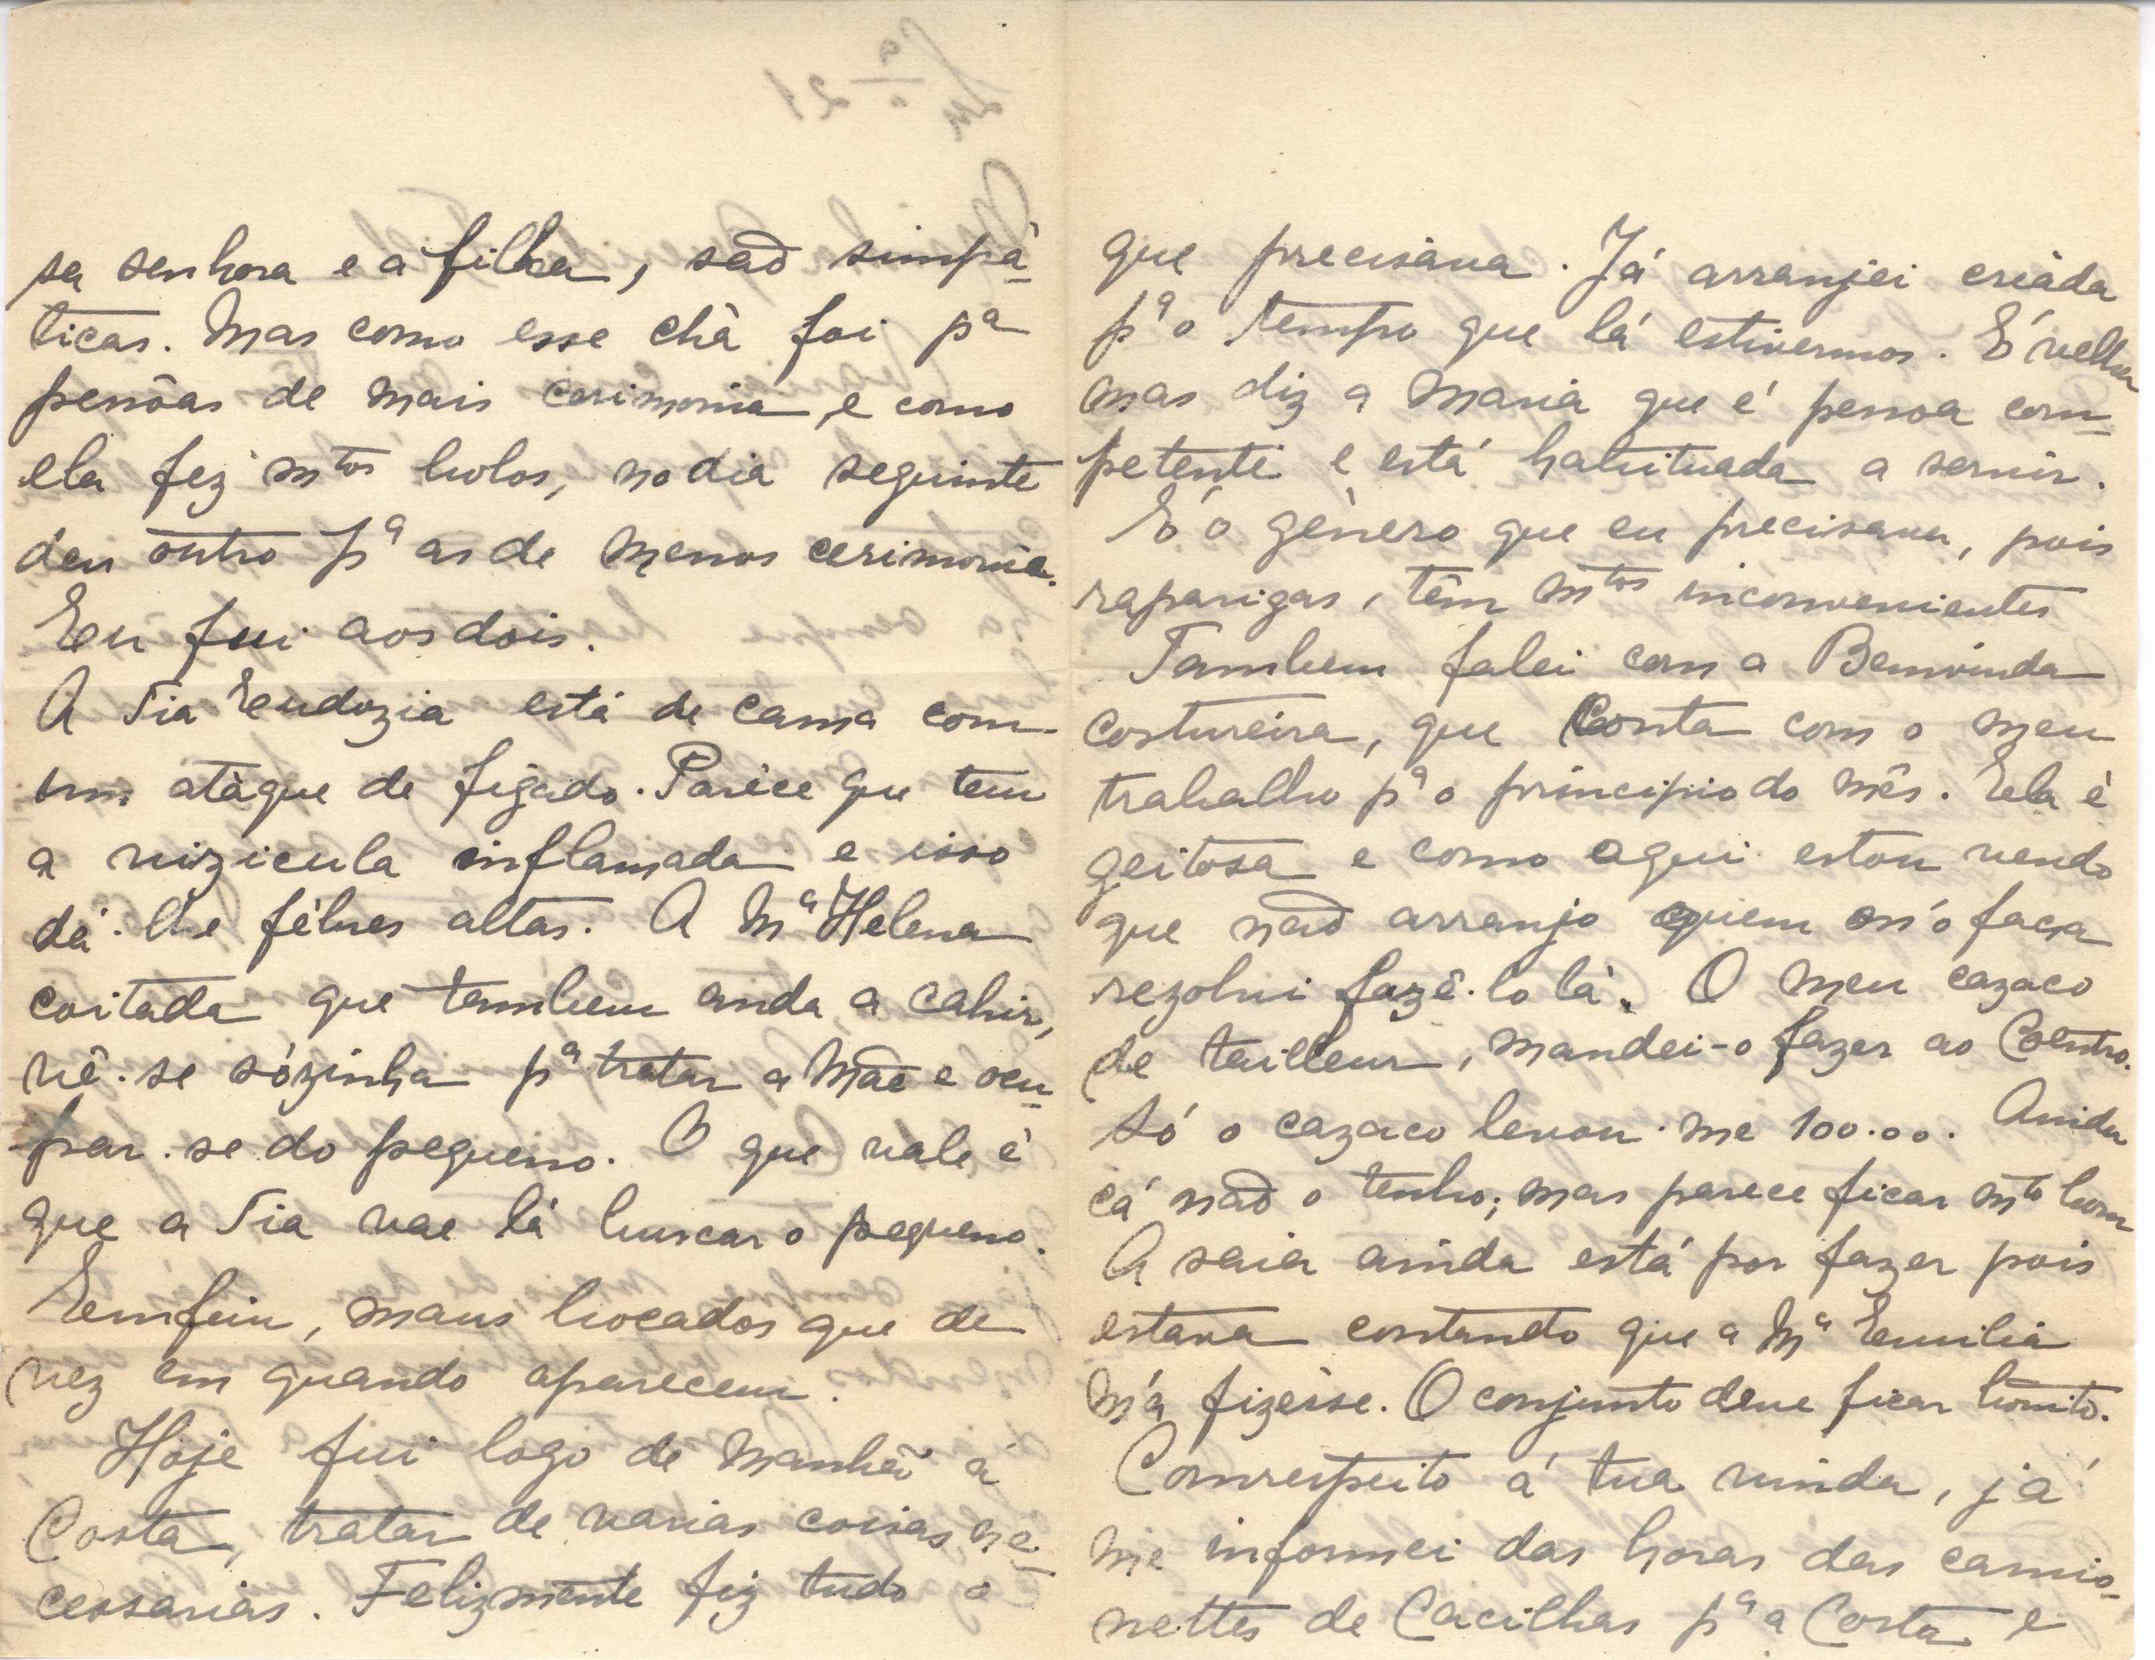 sa senhora e a filha, são simpá-
ticas. Mas como esse chá foi pª
pessôas de mais cerimonia, e como
ela fez mtos bolos, no dia seguinte
deu outro pª as de menos cerimonia.
Eu fui aos dois.
A Tia Eudozia está de cama com
um atáque de figado. Paréce que tem
a vizicula inflamada e isso
dá-lhe fébres altas. A Mª Helena
coitada que tambem anda a cahir,
vê-se sózinha pª tratar a Mãe e ocu-
par-se do pequeno. O que vale é
que a Tia vae lá buscar o pequeno.
Emfim, maus bocados que de
vez em quando aparecem.
Hoje fui logo de manhã á
Costa, tratar de varias coisas ne-
cessarias. Felizmente fiz tudo o
que precisava. Já arranjei criáda
pª o tempo que lá estivermos. É velha
mas diz a Maria que é pessoa com-
petente e está habituada a servir.
É o género que eu precisava, pois
raparigas, têm mtos inconvenientes
Tambem falei com a Bemvinda
costureira, que conta com o meu
trabalho pª o principio do mês. Ela é
geitosa e como aqui estou vendo
que não arranjo quem m'o faça
rezolvi fazê-lo lá. O meu cazaco
de tailleur, mandei-o fazer ao Coentro.
Só o cazaco levou-me 100.00. Ainda
cá não o tenho; mas parece ficar mto bom
A saia ainda está por fazer pois
estava contando que a Mª Emilia
m'a fizésse. O conjunto deve ficar bonito.
Com respeito á tua vinda, já
me informei das horas das camio-
nettes de Cacilhas pª a Costa e